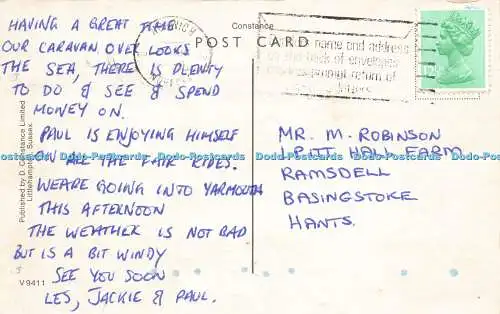 Constance
POST CARD
HAVING A GREAT TIME
OUR CARAVAN OVER LOOKS
THE SEA, THERE IS PLENTY
TO DO & SEE & SPEND
MONEY ON.
PAUL IS ENJOYING HIMSELF
ON ALL THE FAIR RIDES.
WEARE GOING INTO YARMOUTH
THIS AFTERNOON
THE WEATHER IS NOT BAD
BUT IS A BIT WINDY
SEE YOU SOON
LES, JACKIE & PAUL.
name and address
on the back of envelopes
prompt return of
letters
MR. M. ROBINSON
1 PITT HALL FARM
RAMSDELL
BASINGSTOKE
HANTS.
Published by D. Constance Limited
Littlehampton, Sussex.
V9411
Dodo-Postcards Dodo-Postcards Dodo-Postcards Dodo-Postcards Dodo-Postcards Dodo-Postcards